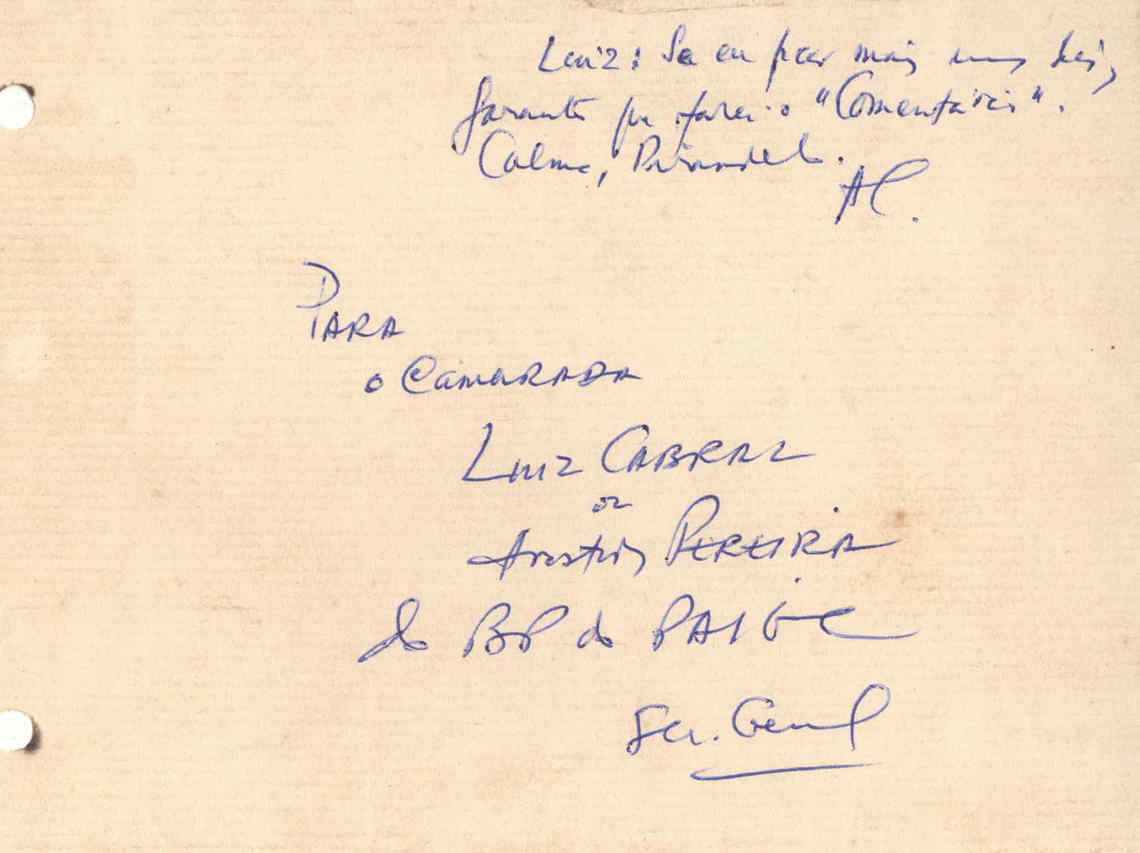 Luiz: Se eu ficar mais uns dias,
garanto que farei o "Comentários".
Calma, Pirandello.
AC.
PARA
o CAMARADA
LUIZ CABRAL
ou
Aristides PEREIRA
do BP do PAIGC
Sec. Geral